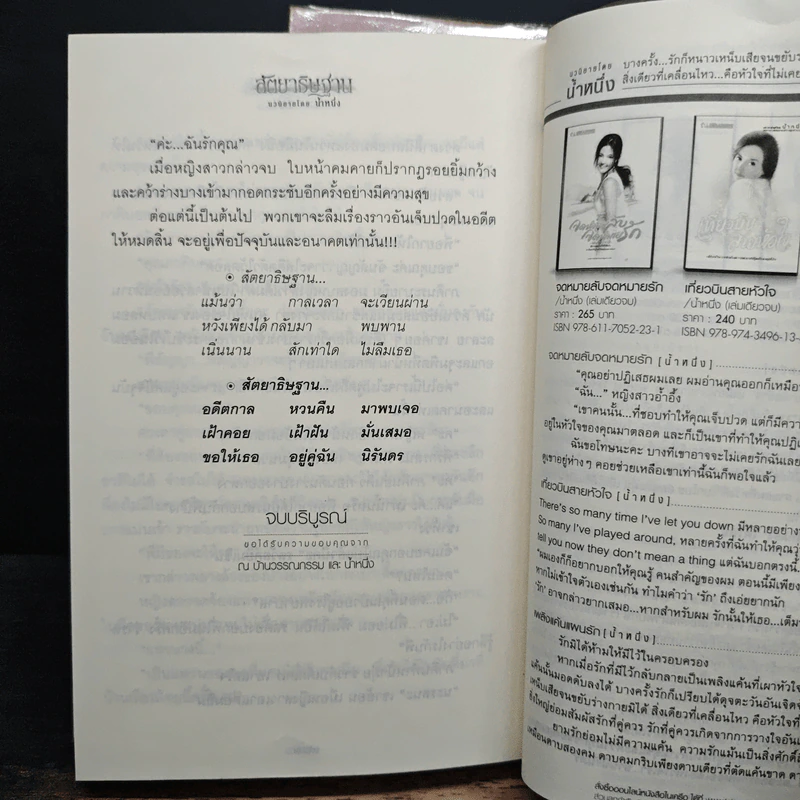 สัตยาธิษฐาน
นวนิยายโดย น้ำหนึ่ง
“ค่ะ...ฉันรักคุณ”
เมื่อหญิงสาวกล่าวจบ ใบหน้าคมคายก็ปรากฏรอยยิ้มกว้าง
และคว้าร่างบางเข้ามากอดกระชับอีกครั้งอย่างมีความสุข
ต่อแต่นี้เป็นต้นไป พวกเขาจะลืมเรื่องราวอันเจ็บปวดในอดีต
ให้หมดสิ้น จะอยู่เพื่อปัจจุบันและอนาคตเท่านั้น!!!
สัตยาธิษฐาน...
แม้นว่า กาลเวลา จะเวียนผ่าน
หวังเพียงได้ กลับมา พบพาน
เนิ่นนาน สักเท่าใด ไม่ลืมเธอ
สัตยาธิษฐาน...
อดีตกาล หวนคืน มาพบเจอ
เฝ้าคอย เฝ้าฝัน มั่นเสมอ
ขอให้เธอ อยู่คู่ฉัน นิรันดร
จบบริบูรณ์
ขอได้รับความขอบคุณจาก
ณ บ้านวรรณกรรม และ น้ำหนึ่ง
นวนิยายโดย
น้ำหนึ่ง
บางครั้ง...รักก็หนาวเหน็บเสียจนขยับร
สิ่งเดียวที่เคลื่อนไหว...คือหัวใจที่ไม่เคย
จดหมายลับจดหมายรัก
/น้ำหนึ่ง (เล่มเดียวจบ)
ราคา : 265 บาท
ISBN 978-611-7052-23-1
เที่ยวบินสายหัวใจ
/น้ำหนึ่ง (เล่มเดียวจบ)
ราคา : 240 บาท
ISBN 978-974-3496-13-
จดหมายลับจดหมายรัก [น้ำหนึ่ง]
“คุณอย่าปฏิเสธผมเลย ผมอ่านคุณออกก็เหมือน
“ฉัน...” หญิงสาวอ้ำอึ้ง
“เขาคนนั้น...ที่ชอบทำให้คุณเจ็บปวด แต่ก็มีความ
อยู่ในหัวใจของคุณมาตลอด และก็เป็นเขาที่ทำให้คุณปฏิเ
ฉันขอโทษนะคะ บางทีเขาอาจจะไม่เคยรักฉันเลย
ดูเขาอยู่ห่างๆ คอยช่วยเหลือเขาเท่านี้ฉันก็พอใจแล้ว
เที่ยวบินสายหัวใจ [น้ำหนึ่ง]
There's so many time I've let you down มีหลายอย่าง
So many I've played around, หลายครั้งที่ฉันทำให้คุณ
tell you now they don't mean a thing แต่ฉันบอกตรงนี้
“ผมเองก็อยากบอกให้คุณรู้ คนสำคัญของผม ตอนนี้มีเพียง
หากไม่เข้าใจตัวเองเช่นกัน ทำไมคำว่า ‘รัก’ ถึงเอ่ยยากนัก
‘รัก’ อาจกล่าวยากเสมอ...หากสำหรับผม รักนั้นให้เธอ...เต็ม
เพลิงแค้นแผนรัก [น้ำหนึ่ง]
รักมิได้ห้ามให้มีไว้ในครอบครอง
หากเมื่อรักที่มีไว้กลับกลายเป็นเพลิงแค้นที่เผาหัวใจ
แค้นนั้นมอดดับลงได้ บางครั้งรักก็เปรียบได้ดุจตะวันอันเจิด
เหน็บเสียจนขยับร่างกายมิได้ สิ่งเดียวที่เคลื่อนไหว คือหัวใจที่
ยิ่งใหญ่ย่อมสัมผัสรักที่คู่ควร รักที่คู่ควรเกิดจากการวางใจอัน
ยามรักย่อมไม่มีความแค้น ความรักแม้นเป็นสิ่งศักดิ์
เหมือนดาบสองคม ดาบคมกริบเพียงดาบเดียวที่ตัดแค้นขาด
สั่งซื้อออนไลน์หนังสือในเครือ ได้ที่